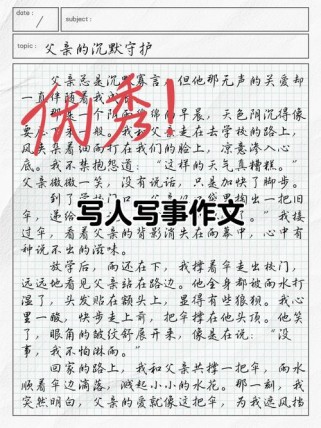 date:
subject:
topic: 父亲的沉默守护
父亲总是沉默寡言，但他那无声的关爱却
一直伴随着我
那是一个阴雨绵绵的早晨，天色阴沉得像
要 我和父亲走在去学校的路上，
风夹杂着细雨打在我们的脸上，凉意渗入心
底。我不禁抱怨道：“这样的天气真糟糕。”
父亲微微一笑，没有说话，只是加快了脚步。
到了学校门口， 掏出一把旧
伞，递给 我接
过伞，看着父亲的背影消失在雨幕中，心中有
种说不出的滋味。
放学后，雨还在下，我撑着伞走出校门，
远远地看见父亲站在路边。他全身都被雨水打
湿了，头发贴在额头上，显得有些狼狈。我心
里一酸，快步走上前，把伞撑在他头顶。他笑
了，眼角的皱纹舒展开来，像是在说：“没
事，我不怕淋雨。”
回家的路上，我和父亲共撑一把伞，雨水
顺着伞边滴落，溅起小小的水花。那一刻，我
突然明白，父亲的爱就像这把伞，为我遮风挡
优秀！
写人写事作文